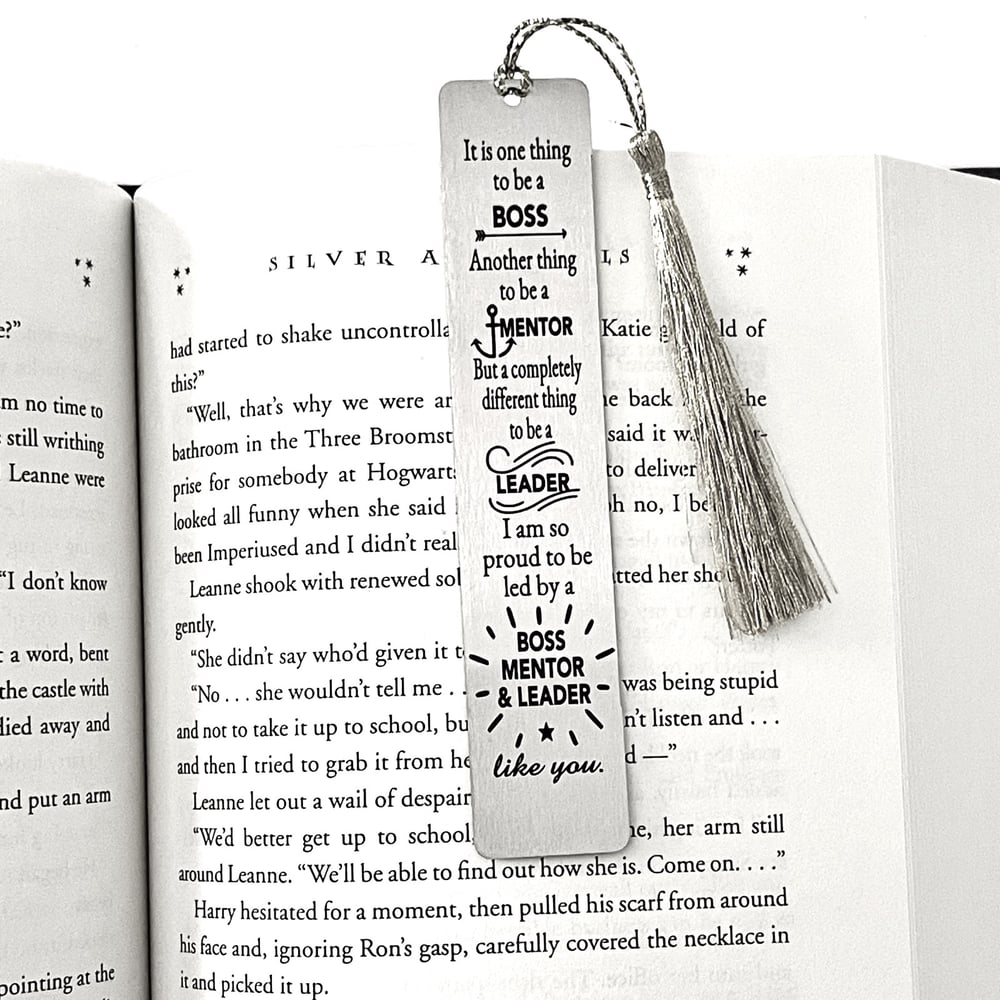 It is one thing
to be a
BOSS
Another thing
to be a
MENTOR
But a completely
different thing
to be a
LEADER
I am so
proud to be
led by a
BOSS
MENTOR
& LEADER
like you.
e?”
m no time to
still writhing
Leanne were
“I don’t know
a word, bent
the castle with
died away and
nd put an arm
pointing at the
SILVER A LS
had started to shake uncontrolla Katie g ld of
this?”
“Well, that’s why we were ar e back the
bathroom in the Three Broomst said it w t-
prise for somebody at Hogwarts to deliver
looked all funny when she said h no, I be
been Imperiused and I didn’t real
Leanne shook with renewed sol tted her sho
gently.
“She didn’t say who’d given it t
“No . . . she wouldn’t tell me . . was being stupid
and not to take it up to school, bu n’t listen and . . .
and then I tried to grab it from he d —”
Leanne let out a wail of despair
“We’d better get up to school, ne, her arm still
around Leanne. “We’ll be able to find out how she is. Come on. . . .”
Harry hesitated for a moment, then pulled his scarf from around
his face and, ignoring Ron’s gasp, carefully covered the necklace in
it and picked it up.